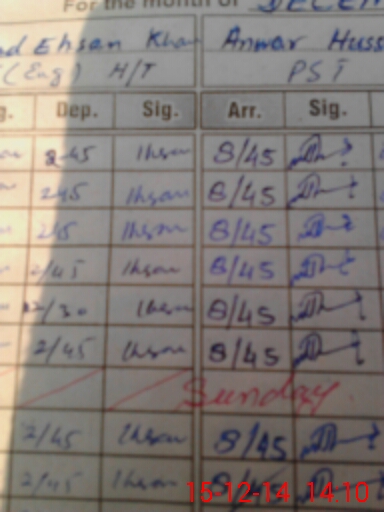 For the month of DECEM
d Ehsan Khan Anwar Huss
(Eng) H/T PST
g. Dep. Sig. Arr. Sig.
2-45 Ihsan 8/45
245 Ihsan 8/45
245 Ihsan 8/45
2/45 Ihsan 8/45
12/30 Ihsan 8/45
2/45 Ihsan 8/45
Sunday
2/45 Ihsan 8/45
2/45 Ihsan 8/45
15-12-14 14:10